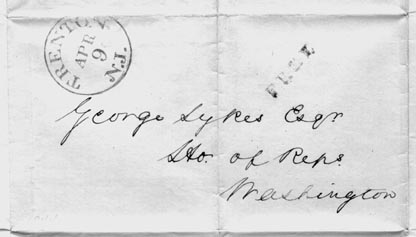 TRENTON N.J.
APR
9
FREE
George Sykes Esqr
Ho. of Reps.
Washington